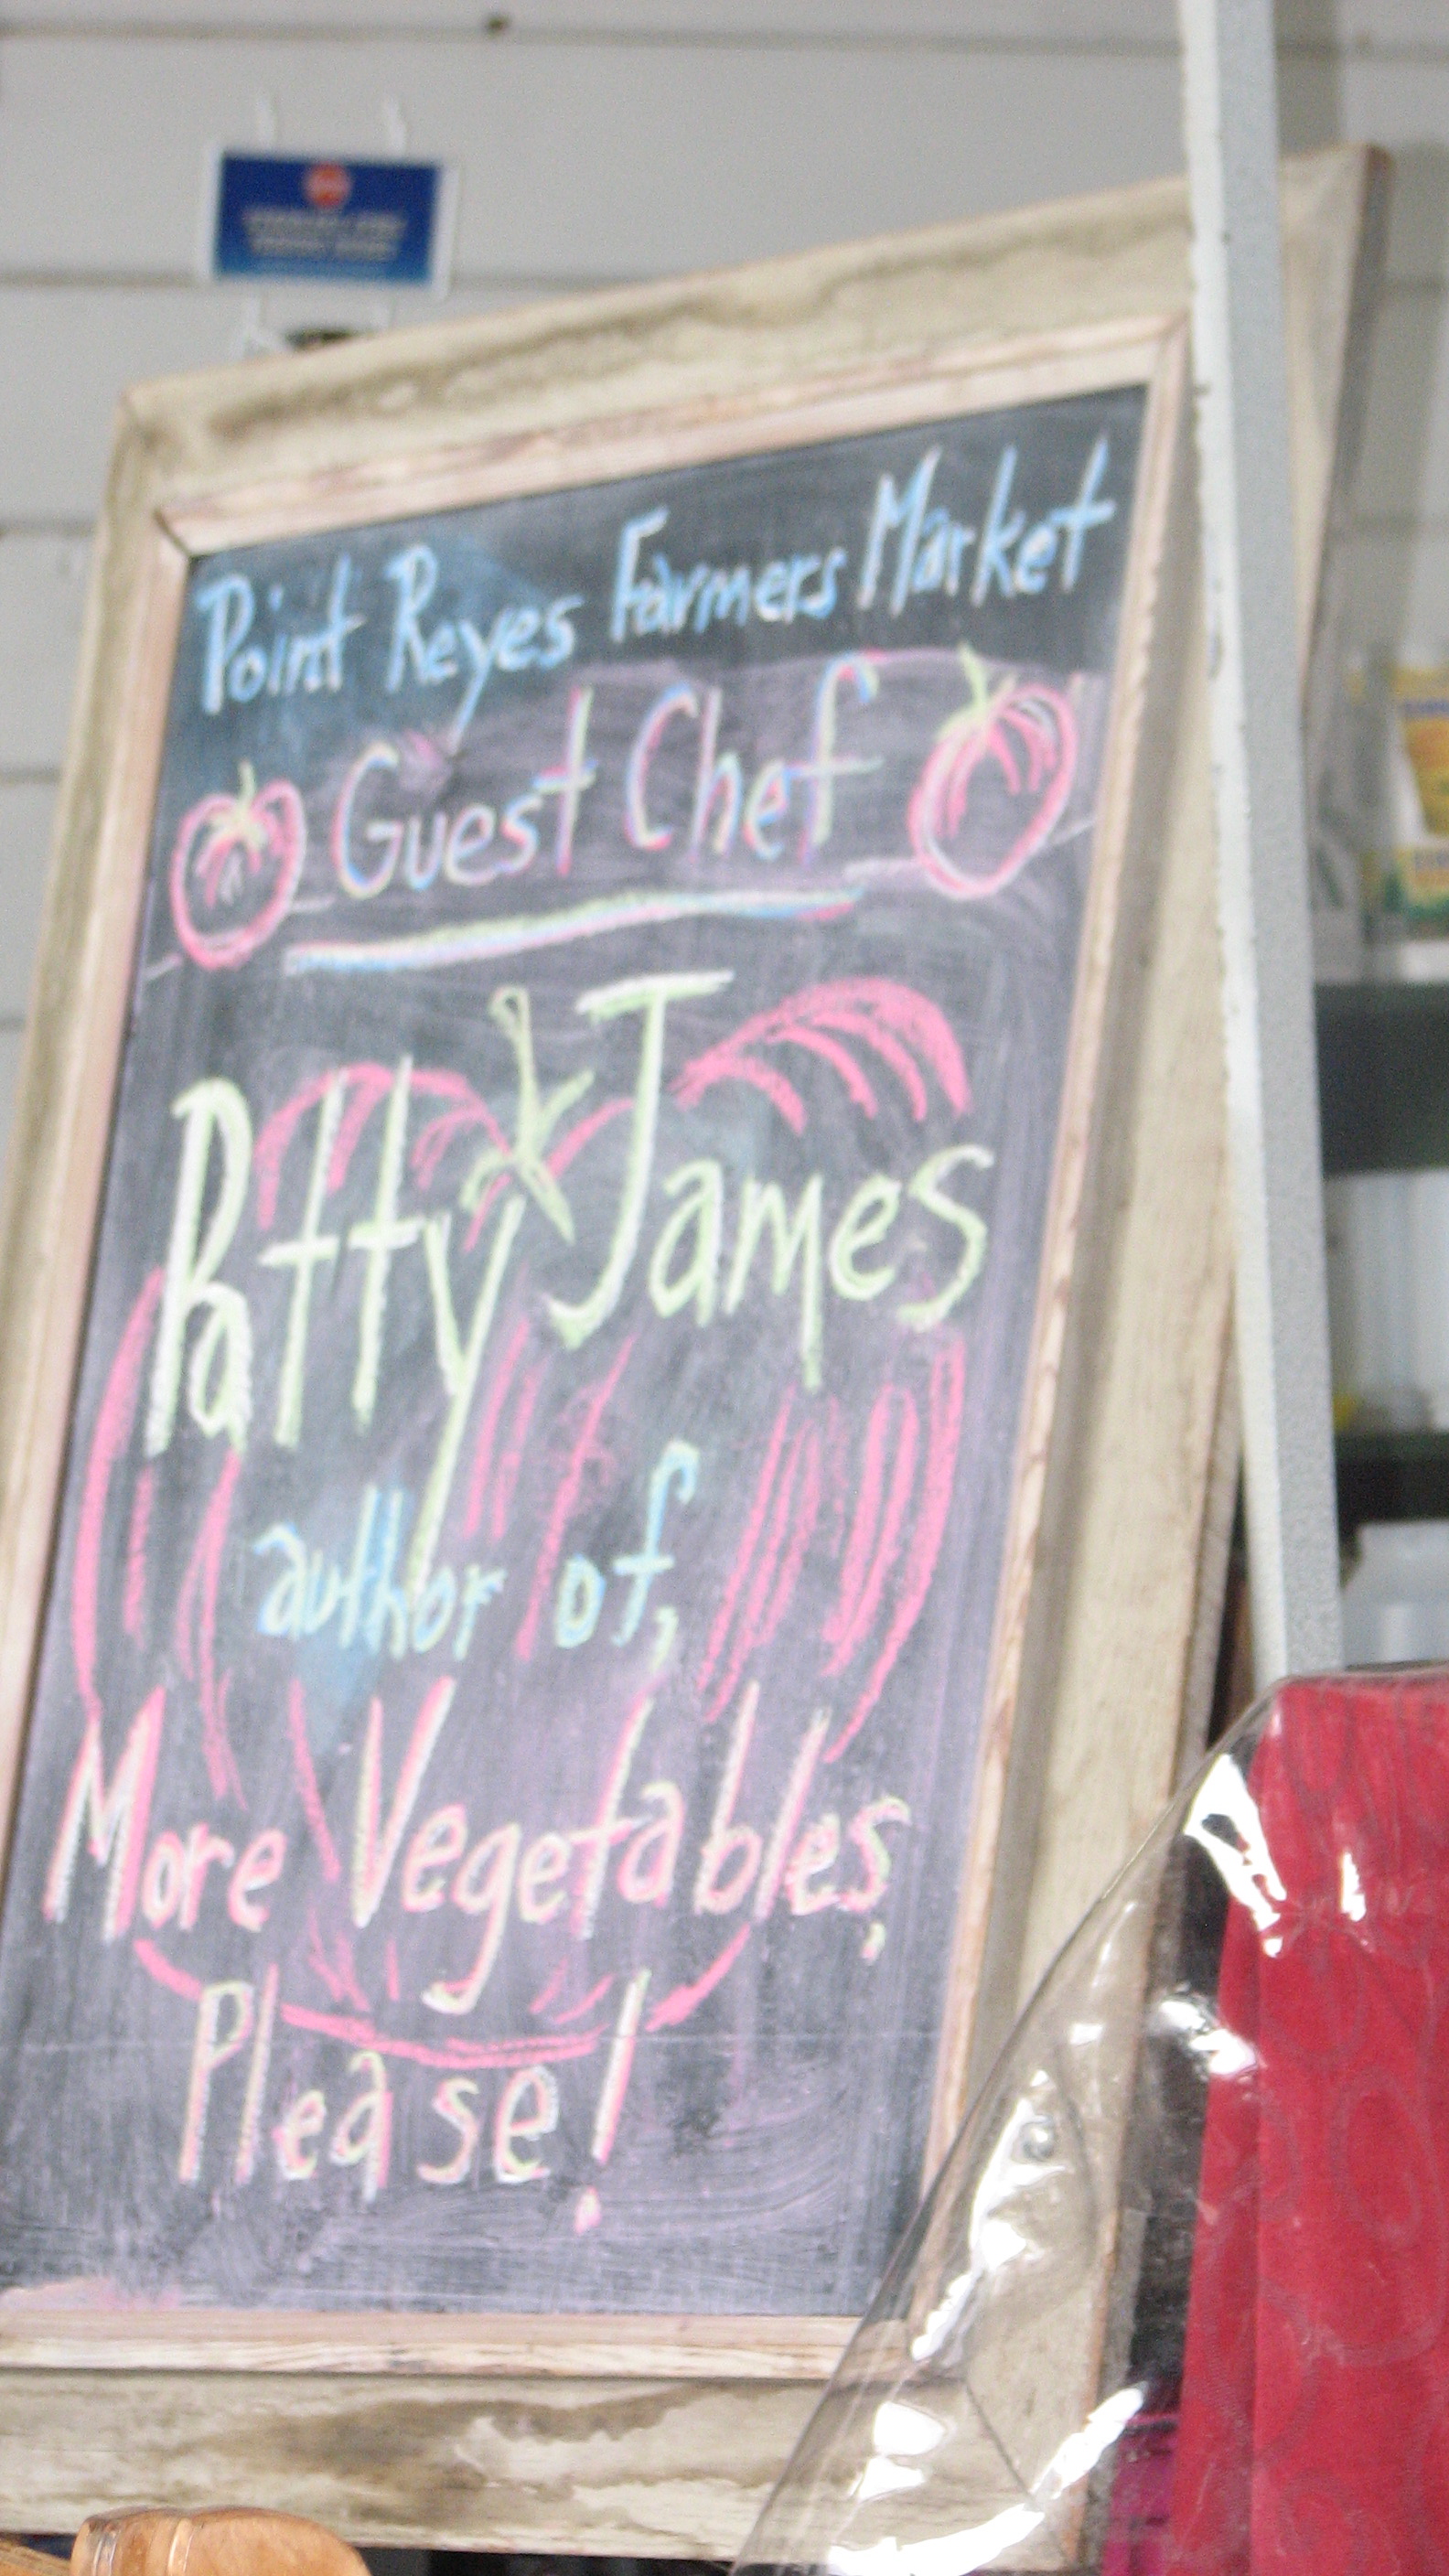 Point Reyes Farmers Market
Guest Chef
Patty James
author of,
More Vegetables,
Please!